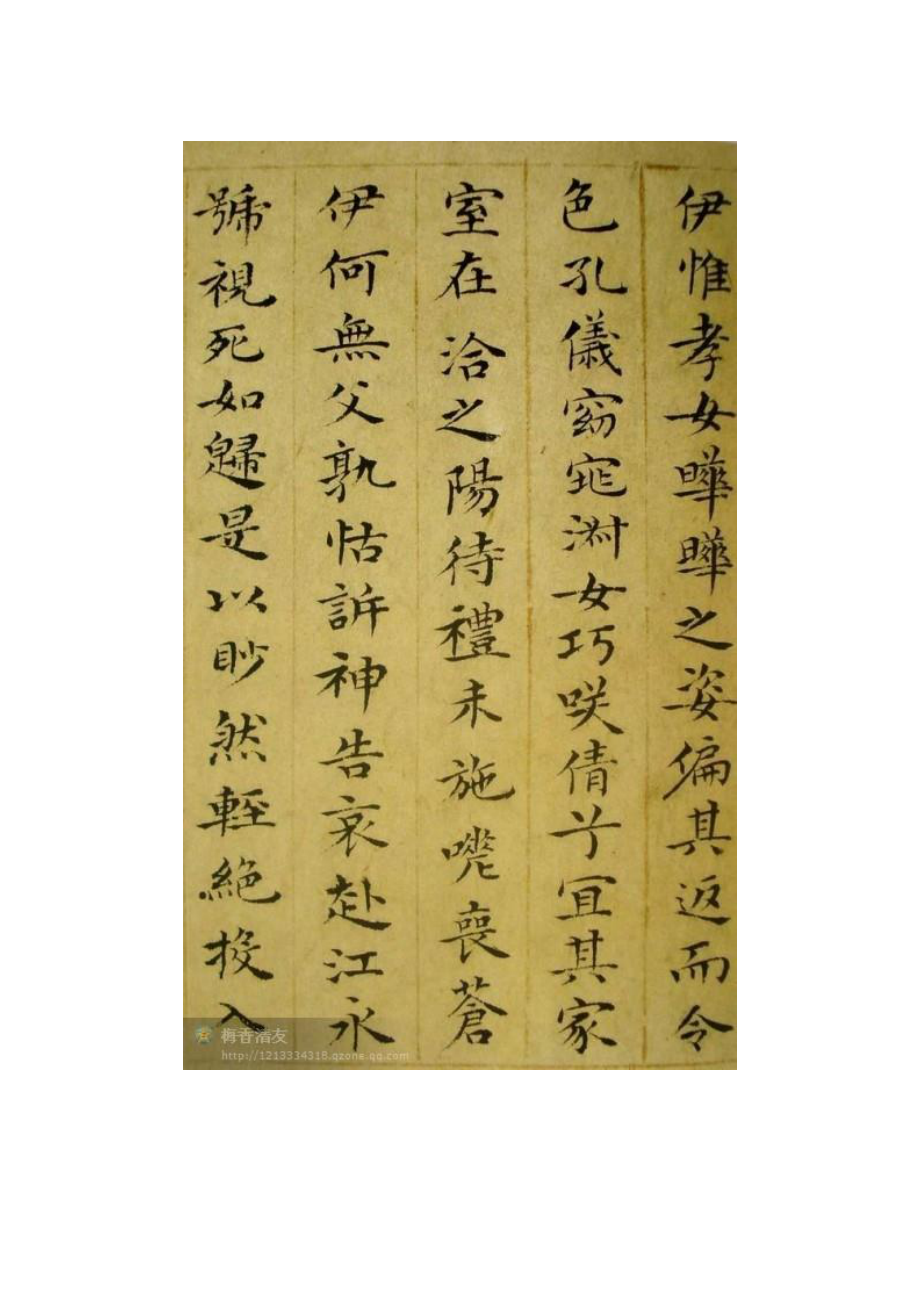 伊惟孝女曄曄之姿偏其返而令
色孔儀窈窕淑女巧咲倩兮宜其家
室在洽之陽待禮未施嘡喪蒼
伊何無父孰怙訴神告哀赴江永
號視死如歸是以眇然輕絕投入
梅香清友
http://1213334318.qzone.qq.com